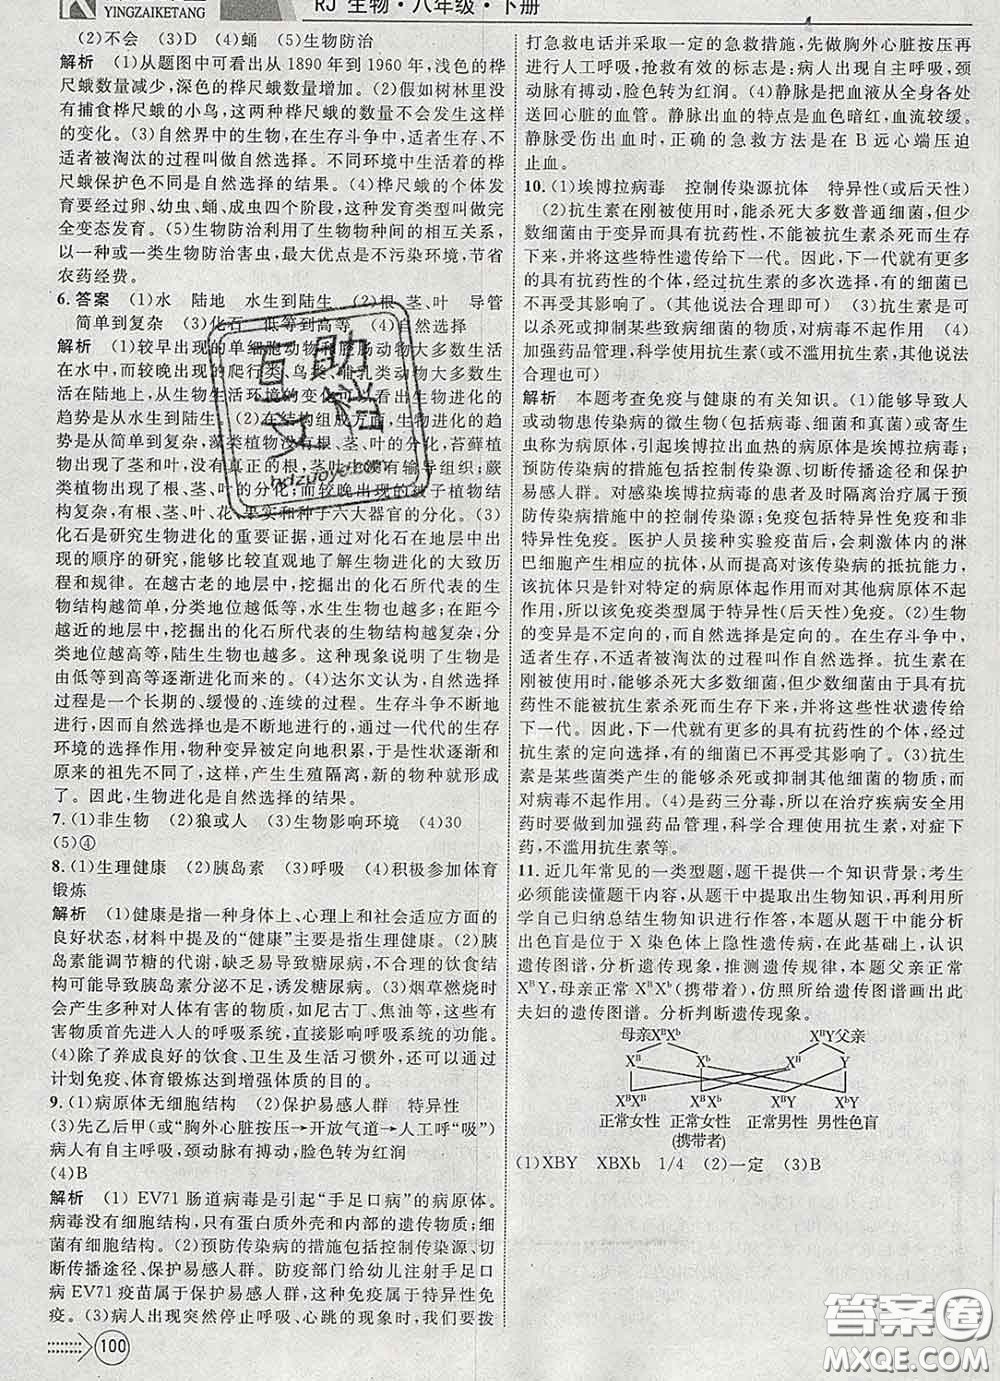 YINGZAIKETANG
RJ 生物·八年级·下册
(2)不会 (3)D (4)蛹 (5)生物防治
解析 (1)从题图中可看出从1890年到1960年,浅色的桦
尺蛾数量减少,深色的桦尺蛾数量增加。(2)假如树林里没
有捕食桦尺蛾的小鸟,这两种桦尺蛾的数量不会发生这样
的变化。(3)自然界中的生物,在生存斗争中,适者生存、不
适者被淘汰的过程叫做自然选择。不同环境中生活着的桦
尺蛾保护色不同是自然选择的结果。(4)桦尺蛾的个体发
育要经过卵、幼虫、蛹、成虫四个阶段,这种发育类型叫做完
全变态发育。(5)生物防治利用了生物物种间的相互关系,
以一种或一类生物防治害虫,最大优点是不污染环境,节省
农药经费。
6.答案 (1)水 陆地 水生到陆生 (2)根 茎、叶 导管
简单到复杂 (3)化石 低等到高等 (4)自然选择
解析 (1)较早出现的单细胞动物和腔肠动物大多数生活
在水中,而较晚出现的爬行类、鸟类、哺乳类动物大多数生
活在陆地上,从生物生活环境的变化可以看出生物进化的
趋势是从水生到陆生。(2)在结构组成方面,生物进化的趋
势是从简单到复杂。藻类植物没有根、茎、叶的分化,苔藓植
物出现了茎和叶,但没有根,茎叶中也没有输导组织;蕨
类植物出现了根、茎、叶的分化;而较晚出现的被子植物结
构复杂,有根、茎、叶、花、果实和种子六大器官的分化。(3)
化石是研究生物进化的重要证据,通过对化石在地层中出
现的顺序的研究,能够比较直观地了解生物进化的大致历
程和规律。在越古老的地层中,挖掘出的化石所代表的生物
结构越简单,分类地位越低等,水生生物也越多。在距今
越近的地层中,挖掘出的化石所代表的生物结构越复杂,分
类地位越高等,陆生生物也越多。这种现象说明了生物由
低等到高等逐渐进化而来的。(4)达尔文认为,自然选择
过程是一个长期的、缓慢的、连续的过程。生存斗争不断地进
行,因而自然选择也是不断地进行,通过一代代的生存
环境的选择作用,物种变异被定向地积累,于是性状逐渐和
原来的祖先不同了,这样,产生生殖隔离,新的物种就形成
了。因此,生物进化是自然选择的结果。
7.(1)非生物 (2)狼或人 (3)生物影响环境 (4)30
(5)④
8.(1)生理健康 (2)胰岛素 (3)呼吸 (4)积极参加体育
锻炼
解析 (1)健康是指一种身体上、心理上和社会适应方面的
良好状态,材料中提及的“健康”主要是指生理健康。(2)胰
岛素能调节糖的代谢,缺乏易导致糖尿病,不合理的饮食可
能导致胰岛素分泌不足,诱发糖尿病。(3)烟草燃烧时会
产生多种对人体有害的物质,如尼古丁、焦油等,这些有害
物质首先进入人的呼吸系统,直接影响呼吸系统的功能。
(4)除了养成良好的饮食、卫生及生活习惯外,还可通过
计划免疫、体育锻炼达到增强体质的目的。
9.(1)病原体无细胞结构 (2)保护易感人群 特异性
(3)先乙后甲(或“胸外心脏按压→开放气道→人工呼“吸”)
病人有自主呼吸,颈动脉有搏动,脸色转为红润
(4)B
解析 (1)EV71肠道病毒是引起“手足口病”的病原体。
病毒没有细胞结构,只有蛋白质外壳和内部的遗传物质;细
菌有细胞结构。(2)预防传染病的措施包括控制传染源、切
断传播途径、保护易感人群。防疫部门给幼儿注射手足口
病EV71疫苗属于保护易感人群,这种免疫属于特异性免
疫。(3)病人出现突然停止呼吸、心跳的现象时,我们要拨
100
打急救电话并采取一定的急救措施,先做胸外心脏按压再
进行人工呼吸,抢救有效的标志是:病人出现自主呼吸,颈
动脉有搏动,脸色转为红润。(4)静脉是把血液从全身各处
送回心脏的血管。静脉出血的特点是血色暗红,血流较缓。
静脉受伤出血时,正确的急救方法是在B远心端压迫
止血。
10.(1)埃博拉病毒 控制传染源抗体 特异性(或后天性)
(2)抗生素在刚被使用时,能杀死大多数普通细菌,但少
数细菌由于变异而具有抗药性,不能被抗生素杀死而生存
下来,并将这些特性遗传给下一代。因此,下一代就具有更
多具有抗药性的个体,经过抗生素的多次选择,有的细菌
就不怕抗生素了。(其他说法合理即可) (3)抗生素是可
以杀死或抑制某些致病细菌的物质,对病毒不起作用 (4)
加强药品管理,科学使用抗生素(或不滥用抗生素,其他说法
合理也可)
解析 本题考查免疫与健康的有关知识。(1)能够导致人
或动物患传染病的微生物(包括病毒、细菌和真菌)或寄生
虫称为病原体,引起埃博拉出血热的病原体是埃博拉病毒;
预防传染病的措施包括控制传染源、切断传播途径和保护
易感人群。对感染埃博拉病毒的患者及时隔离治疗属于预
防传染病措施中的控制传染源;免疫包括特异性免疫和非
特异性免疫。医护人员接种实验疫苗后,会刺激体内的淋
巴细胞产生相应的抗体,从而提高对该传染病的抵抗能力,
该抗体只是针对特定的病原体起作用而对其他病原体不起
作用,所以该免疫类型属于特异性(后天性)免疫。(2)生物
的变异是不定向的,而自然选择是定向的。在生存斗争中,
适者生存、不适者被淘汰的过程叫作自然选择。抗生素在
刚被使用的时候,能够杀死大多数细菌,但少数细菌由于变
异而具有抵抗抗生素的特性,不能被抗
生素杀死而生存下来,并将这些性状遗传给
下一代。因此,下一代就有更多的具有抗药性的个体,经过
抗生素的定向选择,有的细菌就不怕抗生素了。(3)抗生
素是某些菌类产生的能够杀死或抑制某些细菌的物质,对
病毒不起作用。(4)是药三分毒,所以在治疗疾病安全用
药时要做到加强药品管理,科学合理使用抗生素,对症下
药,不滥用抗生素等。
11.近几年常见的一类型题,题干提供一个知识背景,考生
必须能读懂题干内容,从题干中提取出生物知识,再利用所
学自己归纳总结生物知识进行作答,本题从题干中能分析
出色盲是位于X染色体上隐性遗传病,在此基础上,认识
遗传图谱,分析遗传现象,推测遗传规律,本题父亲正常
XᴮY,母亲正常XᴮXᵇ(携带着),仿照所给遗传图谱画出此
夫妇的遗传图谱。分析判断遗传现象。
母亲XᴮXᵇ XᴮY父亲
Xᴮ Xᵇ Xᴮ Y
XᴮXᴮ XᴮXᵇ XᴮY XᵇY
正常女性 正常女性 正常男性 男性色盲
(携带者)
(1)XBY XBXb 1/4 (2)一定 (3)B
互助
文
hdzuoye.com
答案圈
MXQE.COM